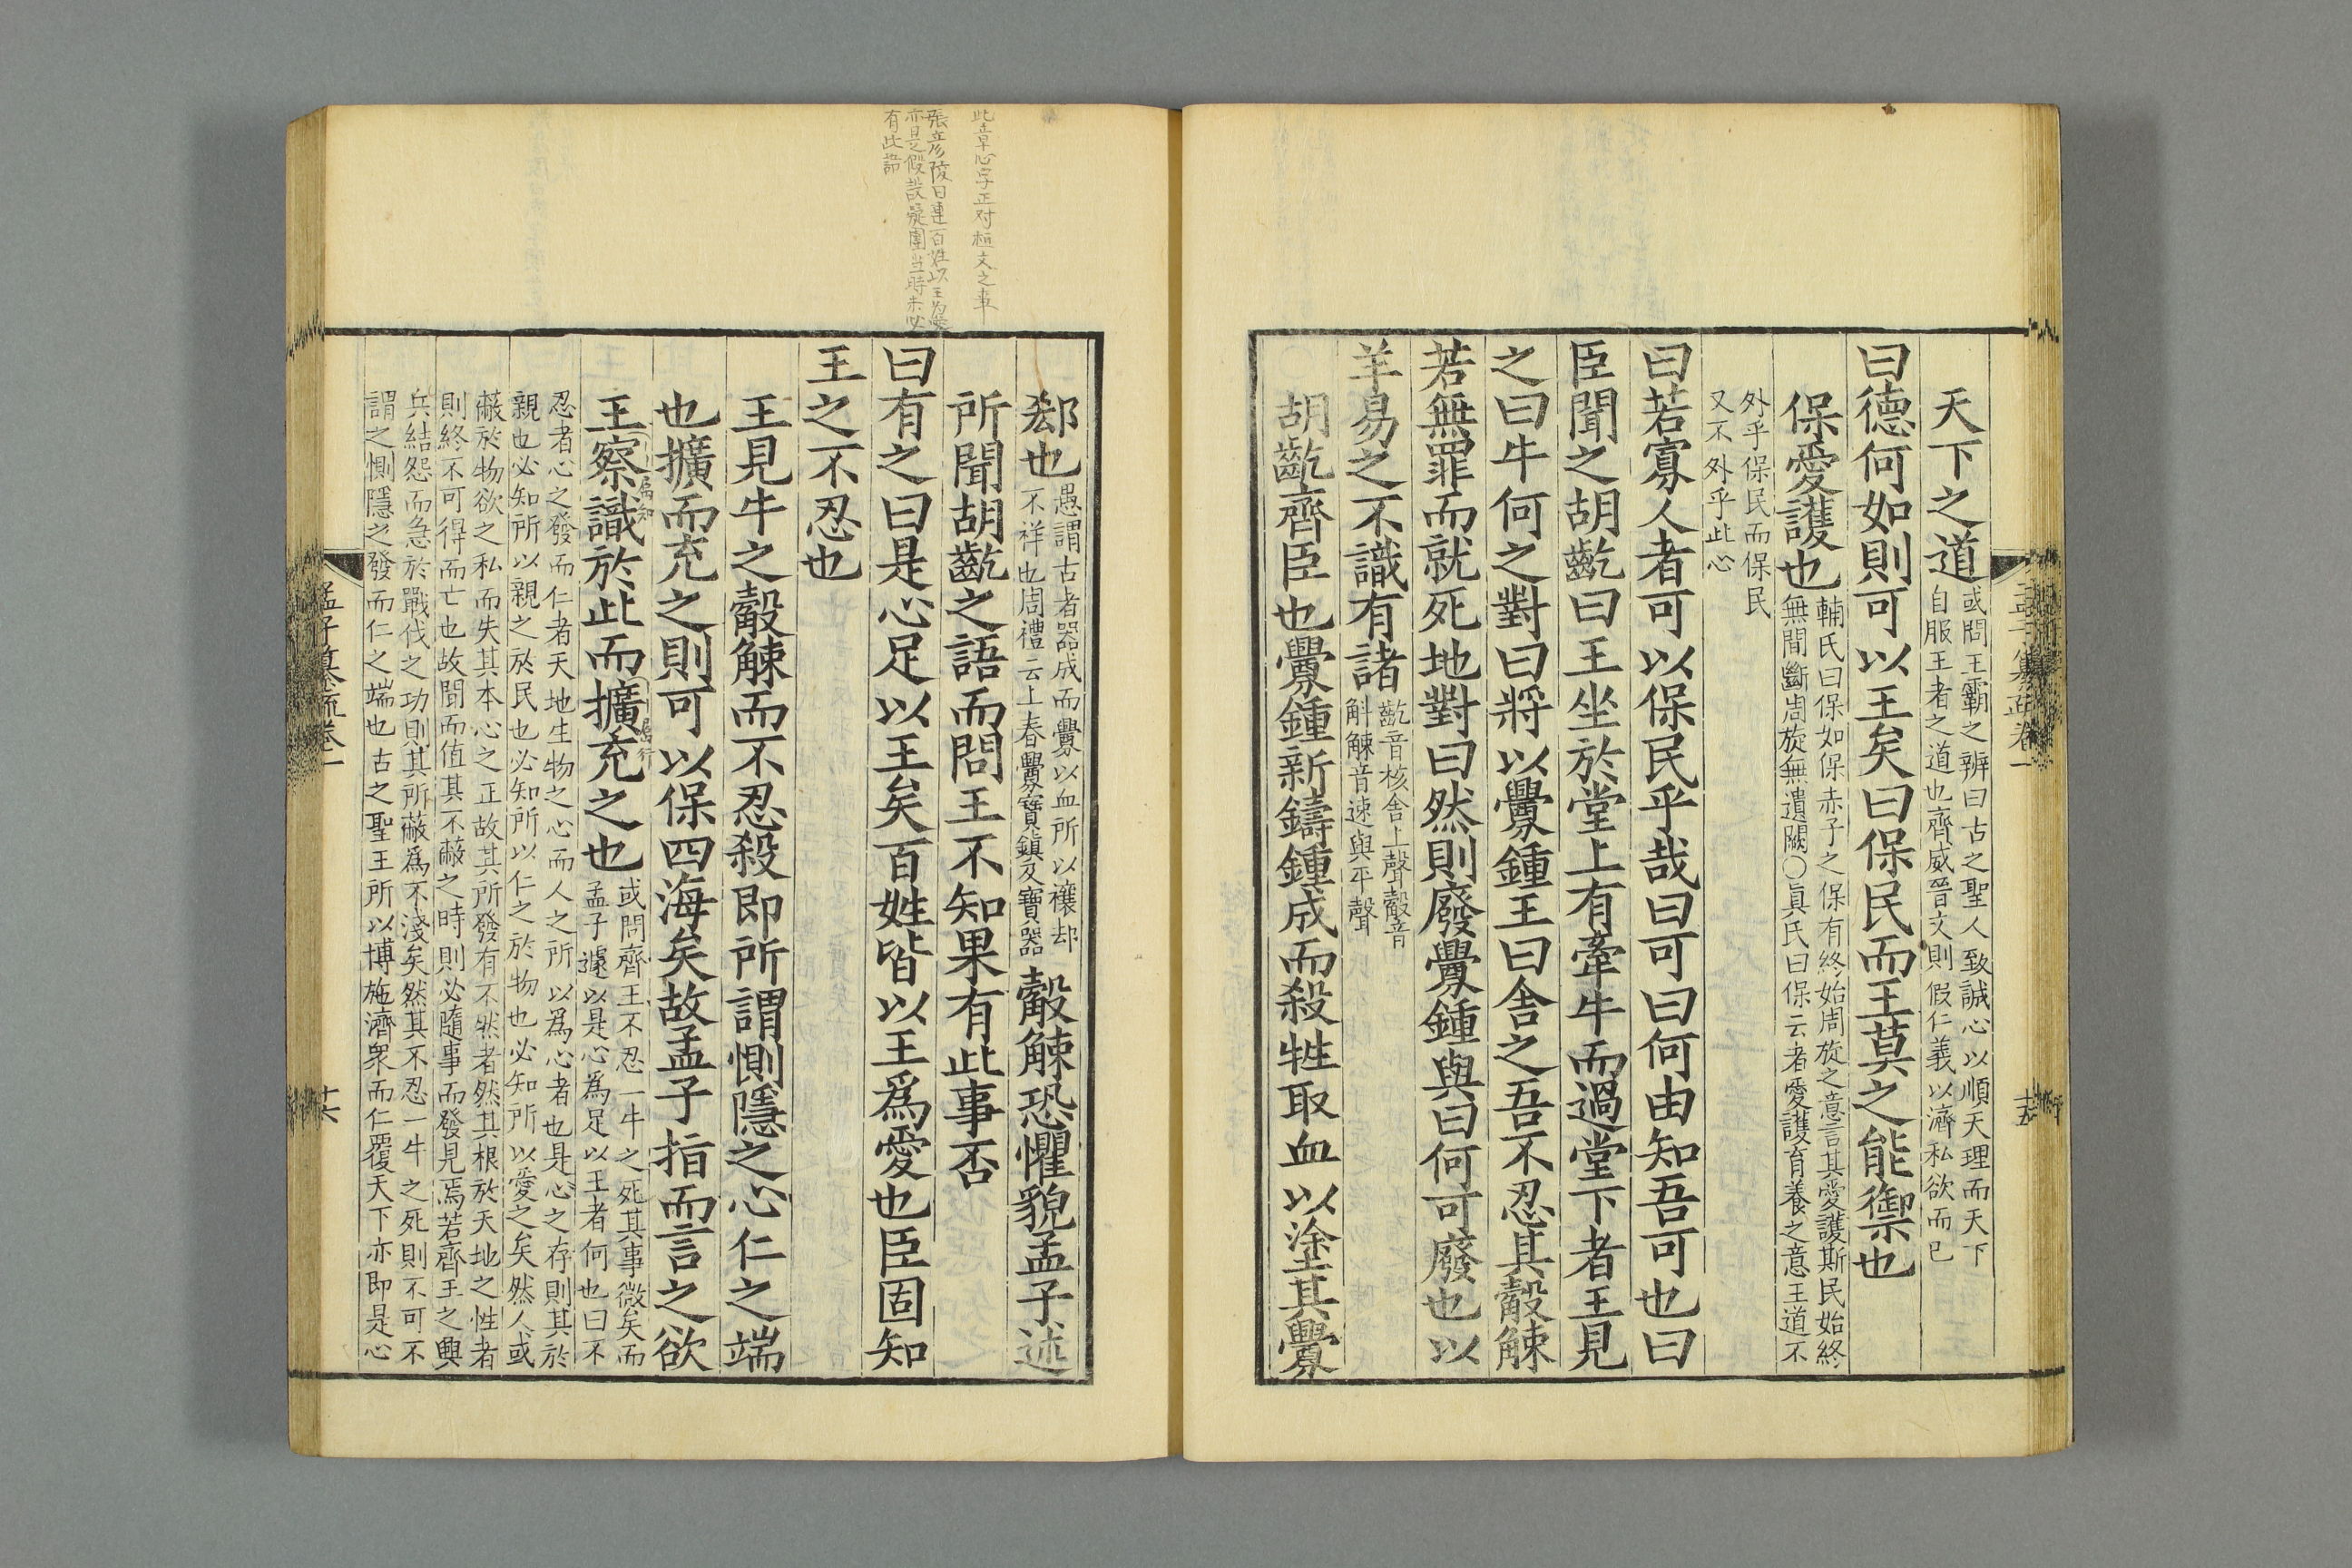 天下之道
或問王霸之辨曰古之聖人致誠心以順天理而天下
自服王者之道也齊威晉文則假仁義以濟私欲而已
曰德何如則可以王矣曰保民而王莫之能禦也
保愛護也
輔氏曰保如保赤子之保有終始周旋之意言其愛護斯民始終
無間斷周旋無遺闕○真氏曰保云者愛護育養之意王道不
外乎保民而保民
又不外乎此心
曰若寡人者可以保民乎哉曰可曰何由知吾可也曰
臣聞之胡齕曰王坐於堂上有牽牛而過堂下者王見
之曰牛何之對曰將以釁鍾王曰舍之吾不忍其觳觫
若無罪而就死地對曰然則廢釁鍾與曰何可廢也以
羊易之不識有諸
齕音核舍上聲觳音
斛觫音速與平聲
胡齕齊臣也釁鍾新鑄鍾成而殺牲取血以塗其釁
郄也
愚謂古者器成而釁以血所以禳却
不祥也周禮云上春釁寶鎮及寶器
觳觫恐懼貌孟子述
所聞胡齕之語而問王不知果有此事否
曰有之曰是心足以王矣百姓皆以王爲愛也臣固知
王之不忍也
王見牛之觳觫而不忍殺即所謂惻隱之心仁之端
也擴而充之則可以保四海矣故孟子指而言之欲
王察識於此而擴充之也
或問齊王不忍一牛之死其事微矣而
孟子遽以是心爲足以王者何也曰不
忍者心之發而仁者天地生物之心而人之所以爲心者也是心之存則其於
親也必知所以親之於民也必知所以仁之於物也必知所以愛之矣然人或
蔽於物欲之私而失其本心之正故其所發有不然者然其根於天地之性者
則終不可得而亡也故間而值其不蔽之時則必隨事而發見焉若齊王之興
兵結怨而急於戰伐之功則其所蔽爲不淺矣然其不忍一牛之死則不可不
謂之惻隱之發而仁之端也古之聖王所以博施濟衆而仁覆天下亦即是心
孟子纂疏卷一
十六
此章心字正对桓文之事
張彦陵曰連百姓以王為愛
亦是假設疑團当時未必
有此語